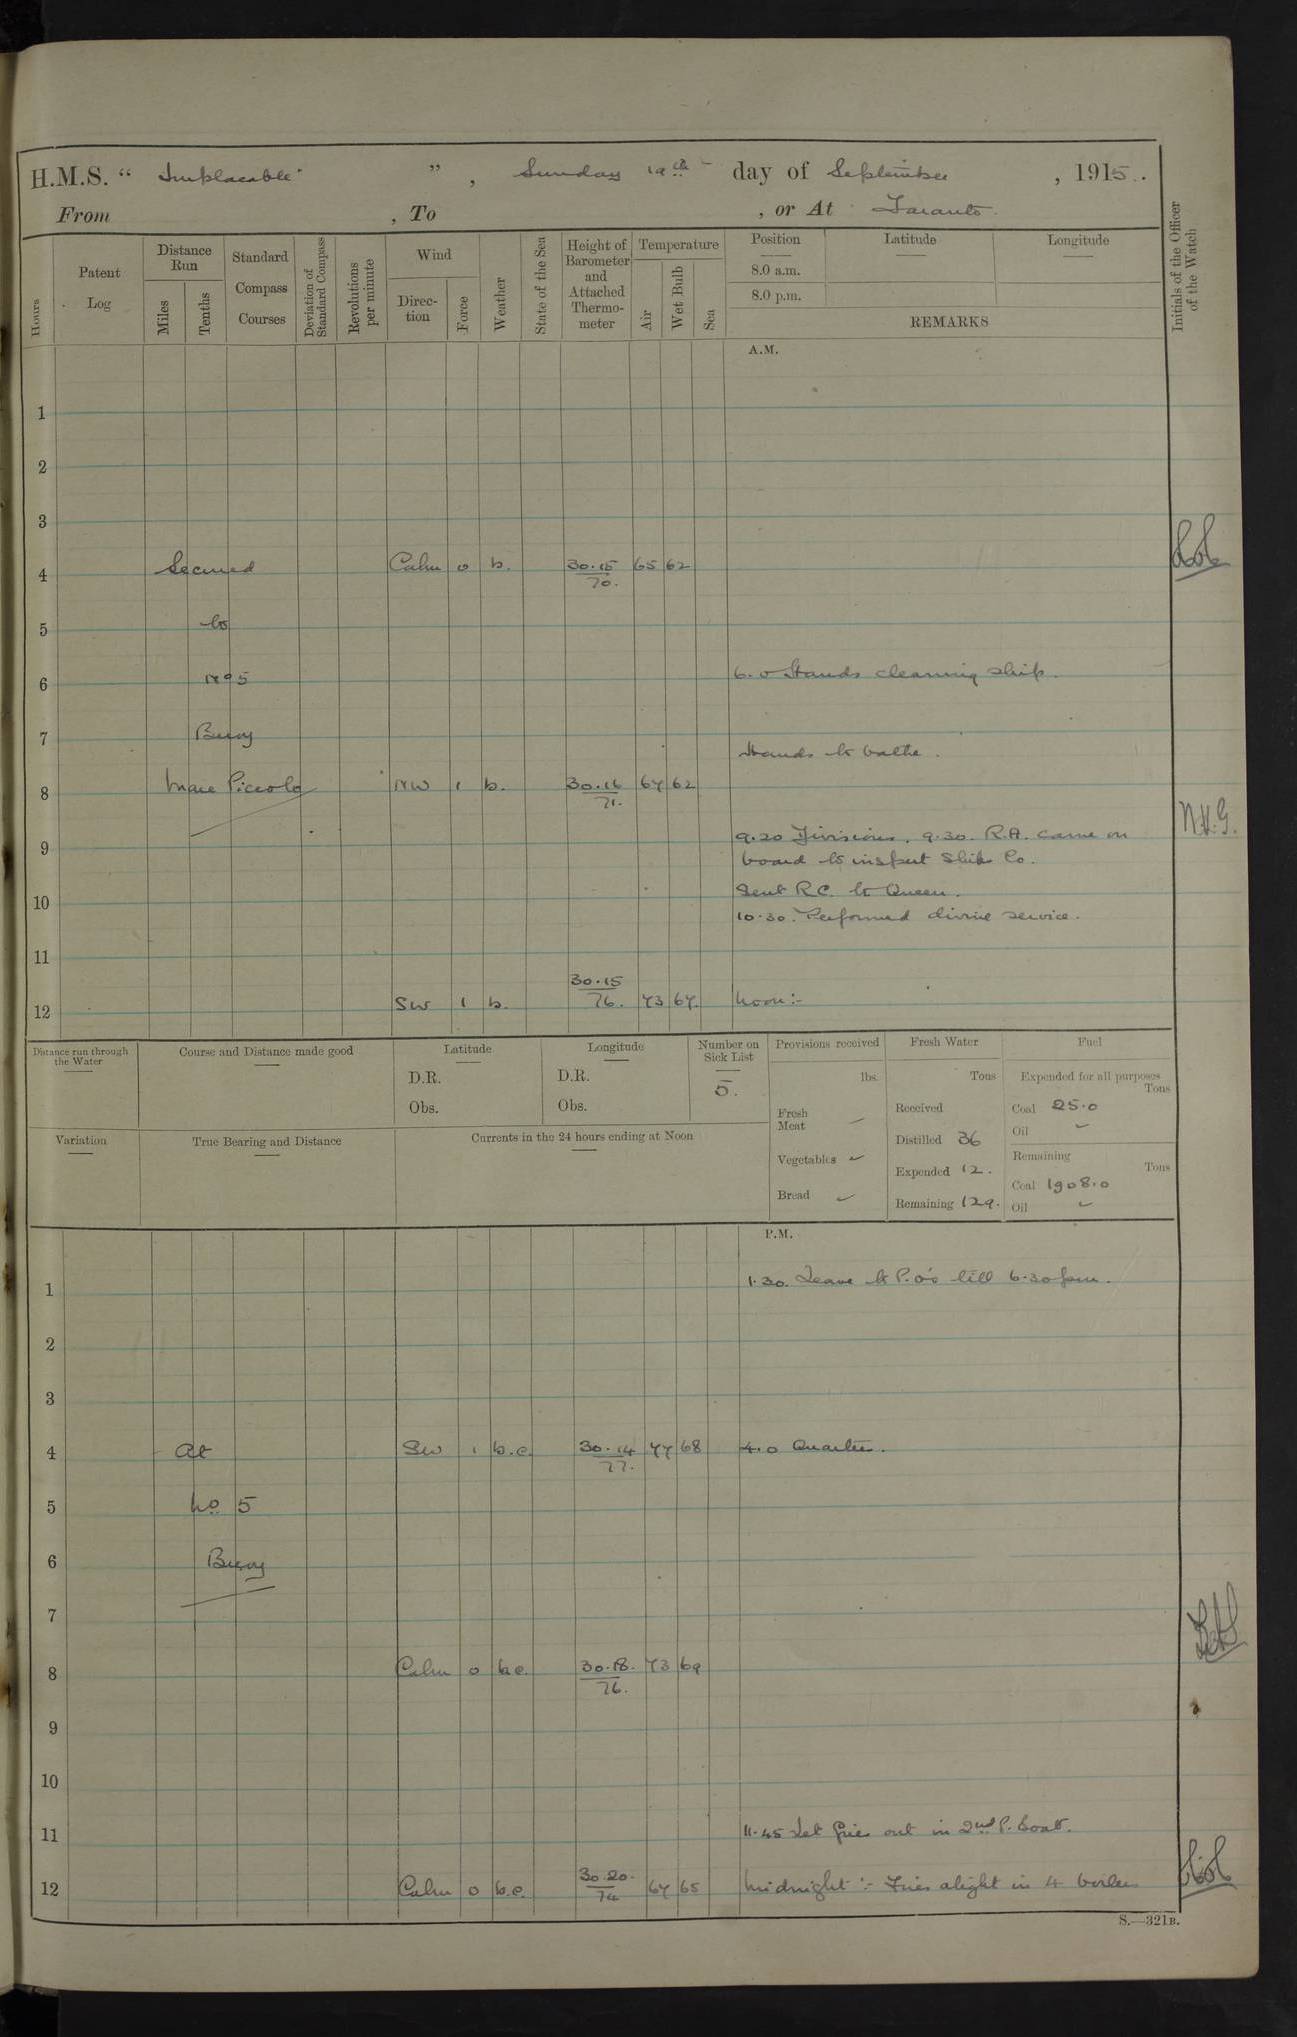 H.M.S. “ Implacable ” , Sunday 19th day of September , 1915 .
From , To , or At Taranto
Hours
Patent Log
Distance Run
Miles
Tenths
Standard Compass Courses
Deviation of Standard Compass
Revolutions per minute
Wind
Direc-tion
Force
Weather
State of the Sea
Height of Barometer and Attached Thermo-meter
Temperature
Air
Wet Bulb
Sea
Position
8.0 a.m.
8.0 p.m.
Latitude
Longitude
REMARKS
Initials of the Officer of the Watch
A.M.
1
2
3
4 Secured Calm 0 b. 30.15 70. 65 62
5 to
6 No 5 6.0 Hands cleaning ship.
7 Buoy
Hands to bathe.
8 Mare Piccolo NW 1 b. 30.16 71. 67 62
N.H.G.
9.20 Divisions. 9.30. R.A. came on
9 board to inspect Ships Co.
10 Sent R.C. to Queen.
10.30. Performed divine service.
11
12 SW 1 b. 30.15 76. 73 67. Noon:-
Distance run through the Water
Course and Distance made good
Latitude
D.R.
Obs.
Longitude
D.R.
Obs.
Number on Sick List
5.
Provisions received
lbs.
Fresh Meat
Vegetables
Bread
Fresh Water
Tons
Received
Distilled 36
Expended 12.
Remaining 129.
Fuel
Expended for all purposes
Tons
Coal 25.0
Oil
Remaining
Tons
Coal 1908.0
Oil
Variation
True Bearing and Distance
Currents in the 24 hours ending at Noon
P.M.
1 1.30. Leave to P.O's till 6.30 pm.
2
3
4 At SW 1 b.c. 30.14 77. 77 68 4.0 Quarters.
5 No 5
6 Buoy
7
8 Calm 0 b.c. 30.18. 76. 73 69
9
10
11 11.45 Let fires out in 2nd P. boat.
12 Calm 0 b.c. 30.20. 74 67 65 Midnight :- Fires alight in 4 boilers
S.—321B.